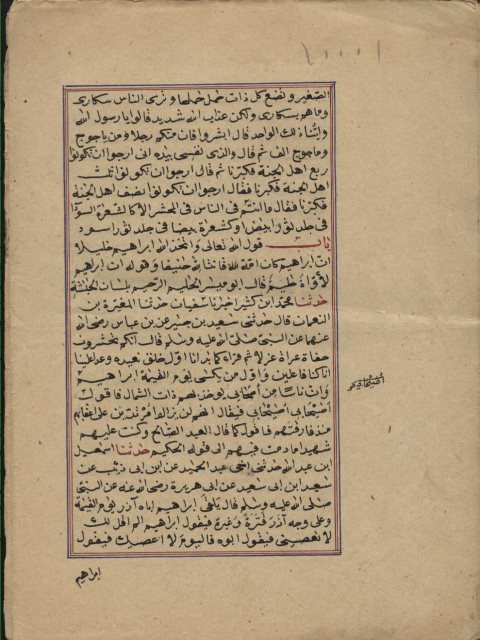 الصغير وتضع كل ذات حمل حملها وترى الناس سكارى
وما هم بسكارى ولكن عذاب الله شديد قالوا يا رسول الله
واينا ذلك الواحد قال ابشروا فان منكم رجلا ومن ياجوج
وماجوج الف ثم قال والذي نفسي بيده اني ارجوا ان تكونوا
ربع اهل الجنة فكبرنا ثم قال ارجوا ان تكونوا ثلث
اهل الجنة فكبرنا فقال ارجوا ان تكونوا نصف اهل الجنة
فكبرنا فقال ما انتم في الناس في المحشر الا كالشعرة السودا
في جلد ثور ابيض او كشعرة بيضا في جلد ثور اسود
باب قول الله تعالى واتخذ الله ابراهيم خليلا
ان ابراهيم كان امة قانتا لله حنيفا وقوله ان ابراهيم
لأواه حليم قال ابو ميسر الحليم الرحيم بلسان الحبشة
حدثنا محمد ابن كثير اخبرنا سفيان حدثنا المغيرة بن
النعمان قال حدثني سعيد بن جبير عن بن عباس رضي الله
عنهما عن النبي صلى الله عليه وسلم قال انكم تحشرون
حفاة عراة غرلا ثم قرا كما بدانا اول خلق نعيده وعدا علينا
انا كنا فاعلين واول من يكسى يوم القيمة ابراهيم
وان ناسا من اصحابي يوخذ بهم ذات الشمال فاقول
أصحابي أصيحابي فيقال انهم لن يزالوا مرتدين على اعقابهم
منذ فارقتهم فاقول كما قال العبد الصالح وكنت عليهم
شهيدا ما دمت فيهم الى قوله الحكيم حدثنا اسمعيل
ابن عبد الله حدثني اخي عبد الحميد عن ابن ابي ذيب عن
سعيد بن ابي سعيد عن ابي هريرة رضي الله عنه عن النبي
صلى الله عليه وسلم قال يلقى ابراهيم اباه آزر يوم القيمة
وعلى وجه آزر قترة وغبرة فيقول ابراهيم الم اقل لك
لا تعصيني فيقول ابوه فاليوم لا اعصيك فيقول
ابراهيم